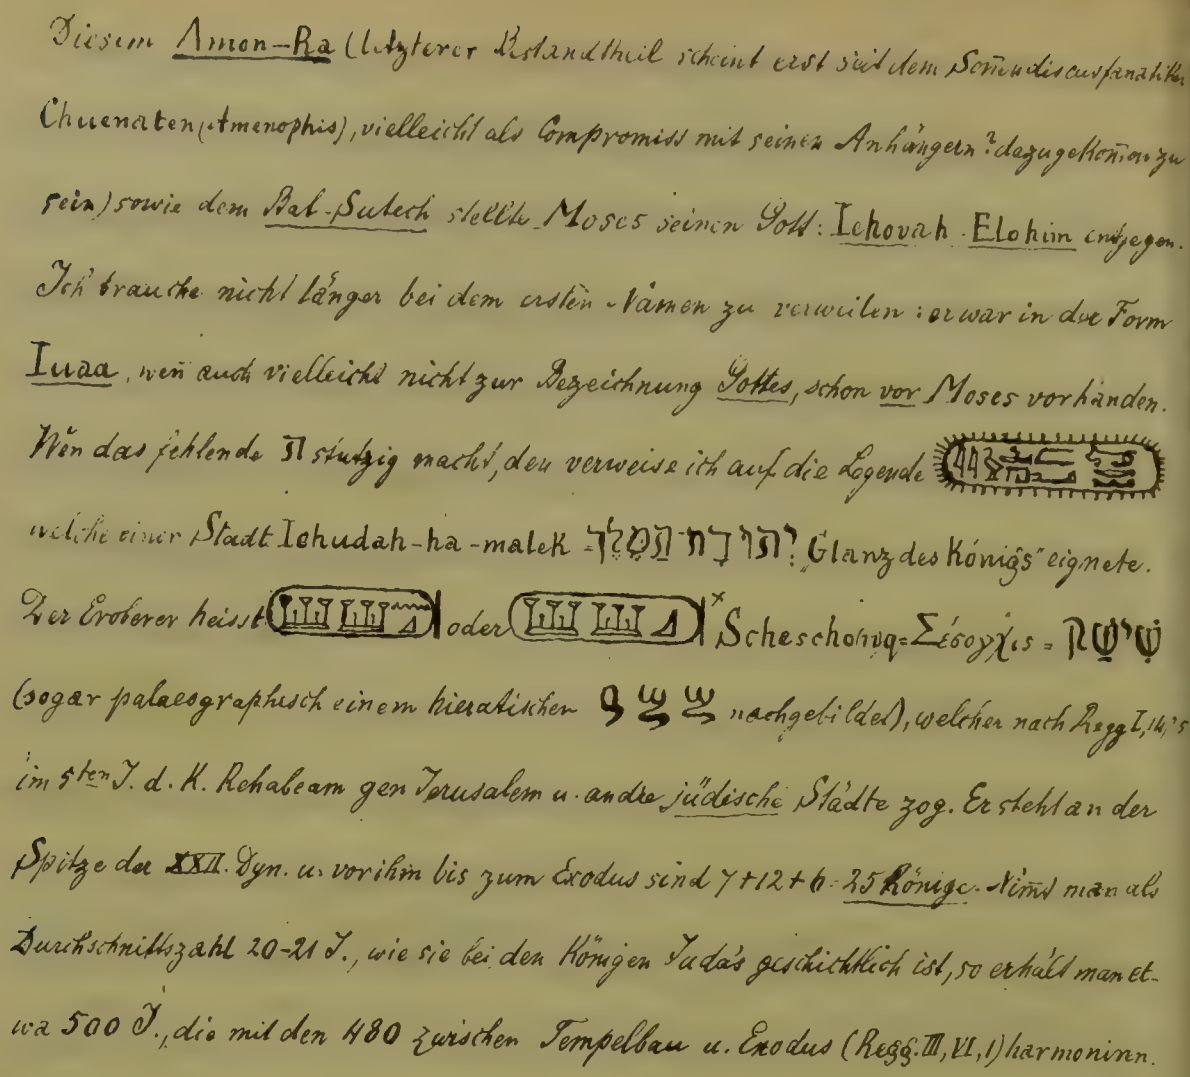 Diesem Amon-Ra (letzterer Bestandtheil scheint erst seit dem Som̄endiscusfanatiker
Chuenaten (Amenophis), vielleicht als Compromiss mit seinen Anhängern? dazugekom̄en zu
sein) sowie dem Bal-Sutech stellte Moses seinen Gott: Iehovah Elohim entgegen.
Ich brauche nicht länger bei dem ersten Namen zu verweilen: er war in der Form
Iuaa, wen̄ auch vielleicht nicht zur Bezeichnung Gottes, schon vor Moses vorhanden.
Wen das fehlende ה stutzig macht, den verweise ich auf die Legende
welche einer Stadt Iehudah-ha-malek יהודה המלך „Glanz des Königs" eignete.
Der Eroberer heisst oder x Scheschonq = Σέσογχις = שׁישׁק
(sogar palaeographisch einem hieratischen nachgebildet), welcher nach Regg I, 14,
im 5ten J. d. K. Rehabeam gen Jerusalem u. andre jüdische Städte zog. Er steht an der
Spitze der XXII. Dyn. u. vor ihm bis zum Exodus sind 7+12+6 = 25 Könige. Nim̄t man als
Durchschnittszahl 20-21 J., wie sie bei den Königen Juda's geschichtlich ist, so erhält man et-
wa 500 J., die mit den 480 zwischen Tempelbau u. Exodus (Regg. III, VI, 1) harmoniren.